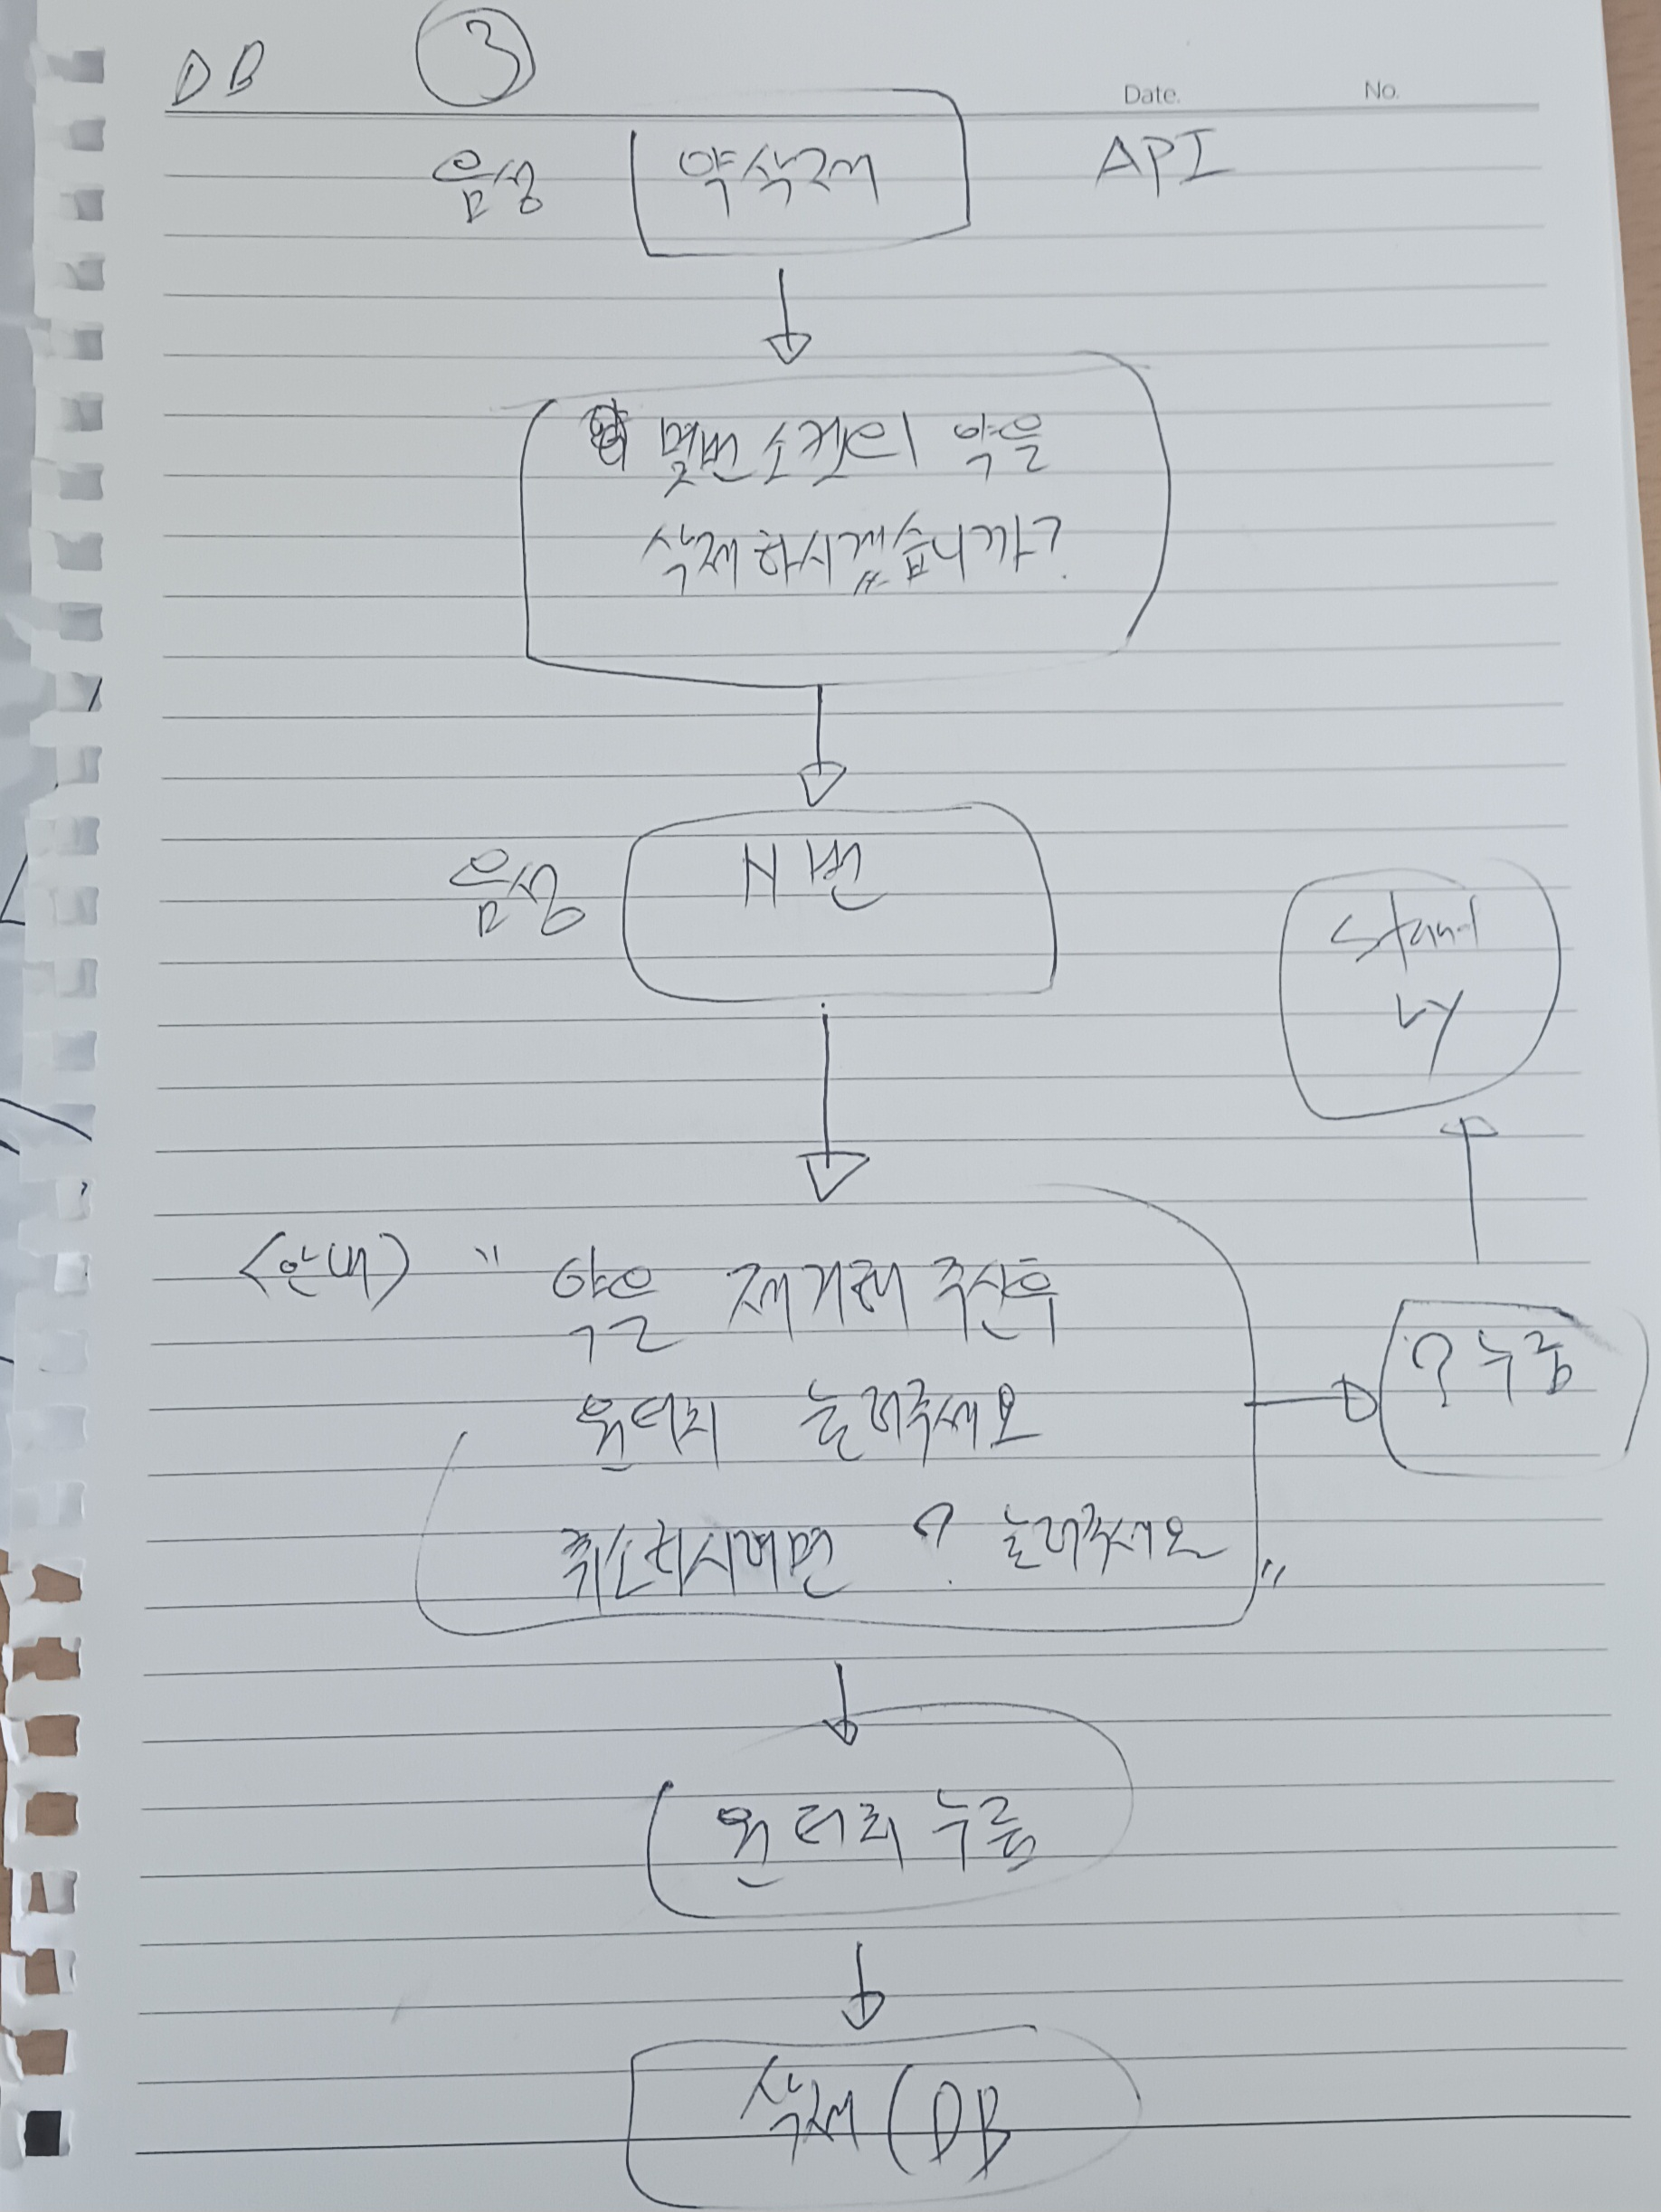 DB ③
Date. No.
음성 약삭제 API
몇번 소켓의 약을
삭제 하시겠습니까?
음성 N번
Stand
by
<안내> " 약을 제거해 주신후
원터치 눌러주세요
? 누름
취소하시려면 ? 눌러주세요 "
원터치 누름
삭제 (DB